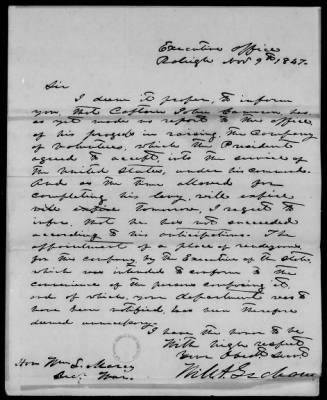 Executive Office
Raleigh Nov 9th 1847.
Sir
I deem it proper, to inform
you, that Captain John Cameron, has
as yet made no report to this office
of his progress in raising the Company
of Volunteers, which the President
agreed to accept, into the service of
the United States, under his command.
And as the time allowed for
completing his levy, will expire
with Tomorrow, I regret to
infer, that he has not succeeded
according to his anticipations. The
appointment of a place of rendezvous,
for this company by the Executive of the State,
which was intended to conform to the
convenience of the persons composing it,
and of which, your department was to
have been notified, has been therefore
deemed unnecessary.
I have the honor to be
With high respect
Your Obedt. Servt.
Will. A. Graham
Hon Wm L. Marcy
Secy. War.